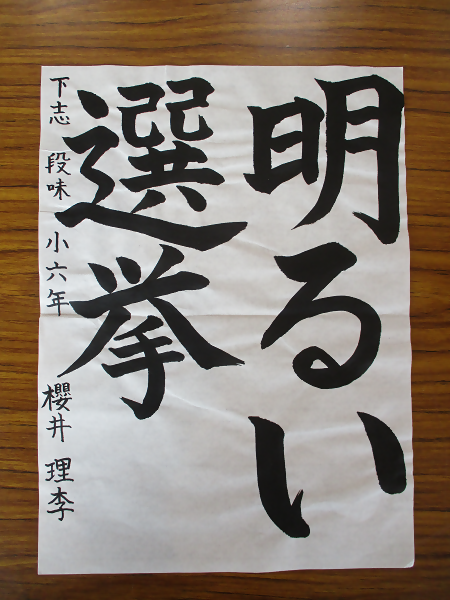 明るい
選挙
下志段味 小六年 櫻井理李